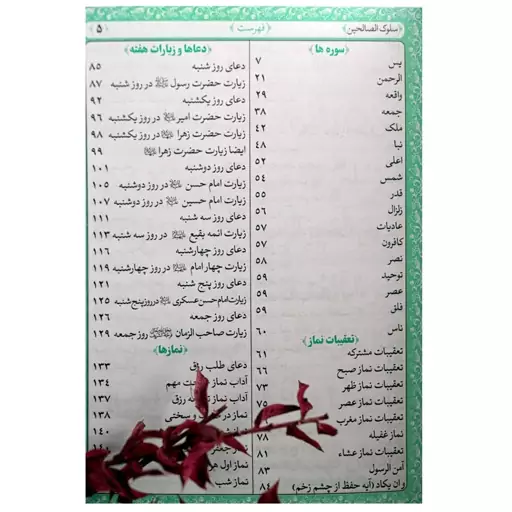 سلوک الصالحین
فهرست
۵
سوره ها
یس ۷
الرحمن ۲۱
واقعه ۲۹
جمعه ۳۸
ملک ۴۲
نبا ۴۸
اعلی ۵۲
شمس ۵۴
قدر ۵۵
زلزال ۵۶
عادیات ۵۷
کافرون ۵۷
نصر ۵۸
توحید ۵۹
عصر ۵۹
فلق ۵۹
ناس ۶۰
تعقیبات نماز
تعقیبات مشترکه ۶۱
تعقیبات نماز صبح ۶۶
تعقیبات نماز ظهر ۷۳
تعقیبات نماز عصر ۷۵
تعقیبات نماز مغرب ۷۶
نماز غفیله ۷۸
تعقیبات نماز عشاء ۸۱
آمن الرسول ۸۳
وان یکاد (آیه حفظ از چشم زخم) ۸۴
دعاها و زیارات هفته
دعای روز شنبه ۸۵
زیارت حضرت رسول ﷺ در روز شنبه ۸۷
دعای روز یکشنبه ۹۲
زیارت حضرت امیر در روز یکشنبه ۹۶
زیارت حضرت زهرا در روز یکشنبه ۹۸
ایضا زیارت حضرت زهرا ۹۹
دعای روز دوشنبه ۱۰۱
زیارت امام حسن در روز دوشنبه ۱۰۵
زیارت امام حسین در روز دوشنبه ۱۰۷
دعای روز سه شنبه ۱۱۱
زیارت ائمه بقیع در روز سه شنبه ۱۱۳
دعای روز چهارشنبه ۱۱۶
زیارت چهار امام در روز چهارشنبه ۱۱۹
دعای روز پنج شنبه ۱۲۱
زیارت امام حسن عسکری در روز پنج شنبه ۱۲۵
دعای روز جمعه ۱۲۶
زیارت صاحب الزمان روز جمعه ۱۲۹
نمازها
دعای طلب رزق ۱۳۳
آداب نماز مهم ۱۳۴
آداب نماز رزق ۱۳۷
نماز در و سختی ۱۳۸
نماز ۱۴۰
نماز جعفر ۱۴۰
نماز اول
نماز شب